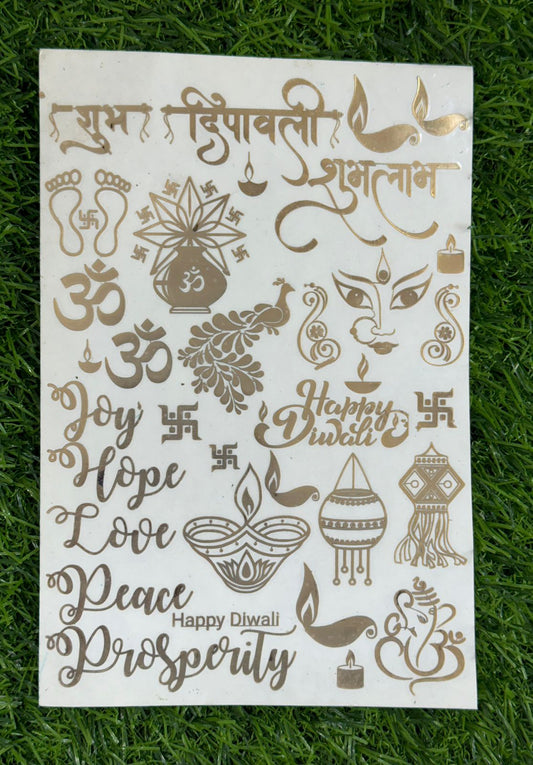 शुभ दिपावली
शुभ लाभ
ॐ
ॐ
ॐ
Joy
Happy
Diwali
Hope
Love
Peace
Happy Diwali
Prosperity
ॐ